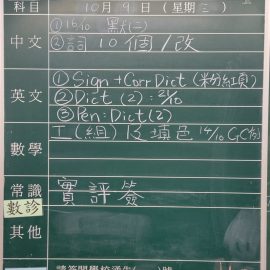 科目 10月9日(星期三)
中文 ①16/10 默(二)
②詞10個/改
英文 ①Sign+Corr Dict (粉紅項)
②Dict (2): 2/10
③Pen: Dict (2)
數學 工(組) 14/10
常識 實評簽
數診
其他